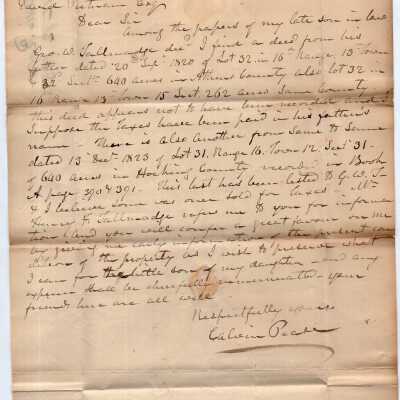 David Putnam Esq
Dear Sir
Among the papers of my late son in law
Geo. W. Tallmadge decd I find a deed from his
father dated 20th Sept 1820 of Lot 32 in 16th Range 13 Town
32 Sectn 640 acres in Athens County also lot 32 in
16 Range 13 Town 15 Sect 262 acres Same County
this deed appears not to have been recorded and I
Suppose the taxes have been paid in his father's
name - There is also another from Same to Same
dated 13 Decr 1823 of Lot 31. Range 16. Town 12. Sect 31 -
of 640 acres in Hocking County recorded in Book
A page 390 & 391 - This last has been listed to G.W.T.
& I believe Some was once sold for taxes - Mr
Henry F. Tallmadge refers me to you for informa
tion and you will confer a great favour on me
by giving me early information of the present con
dition of the property as I wish to preserve what
I can for the little son of my daughter - and any
expense shall be cheerfully remunerated - your
friends here are all well
Respectfully yours
Calvin Pease